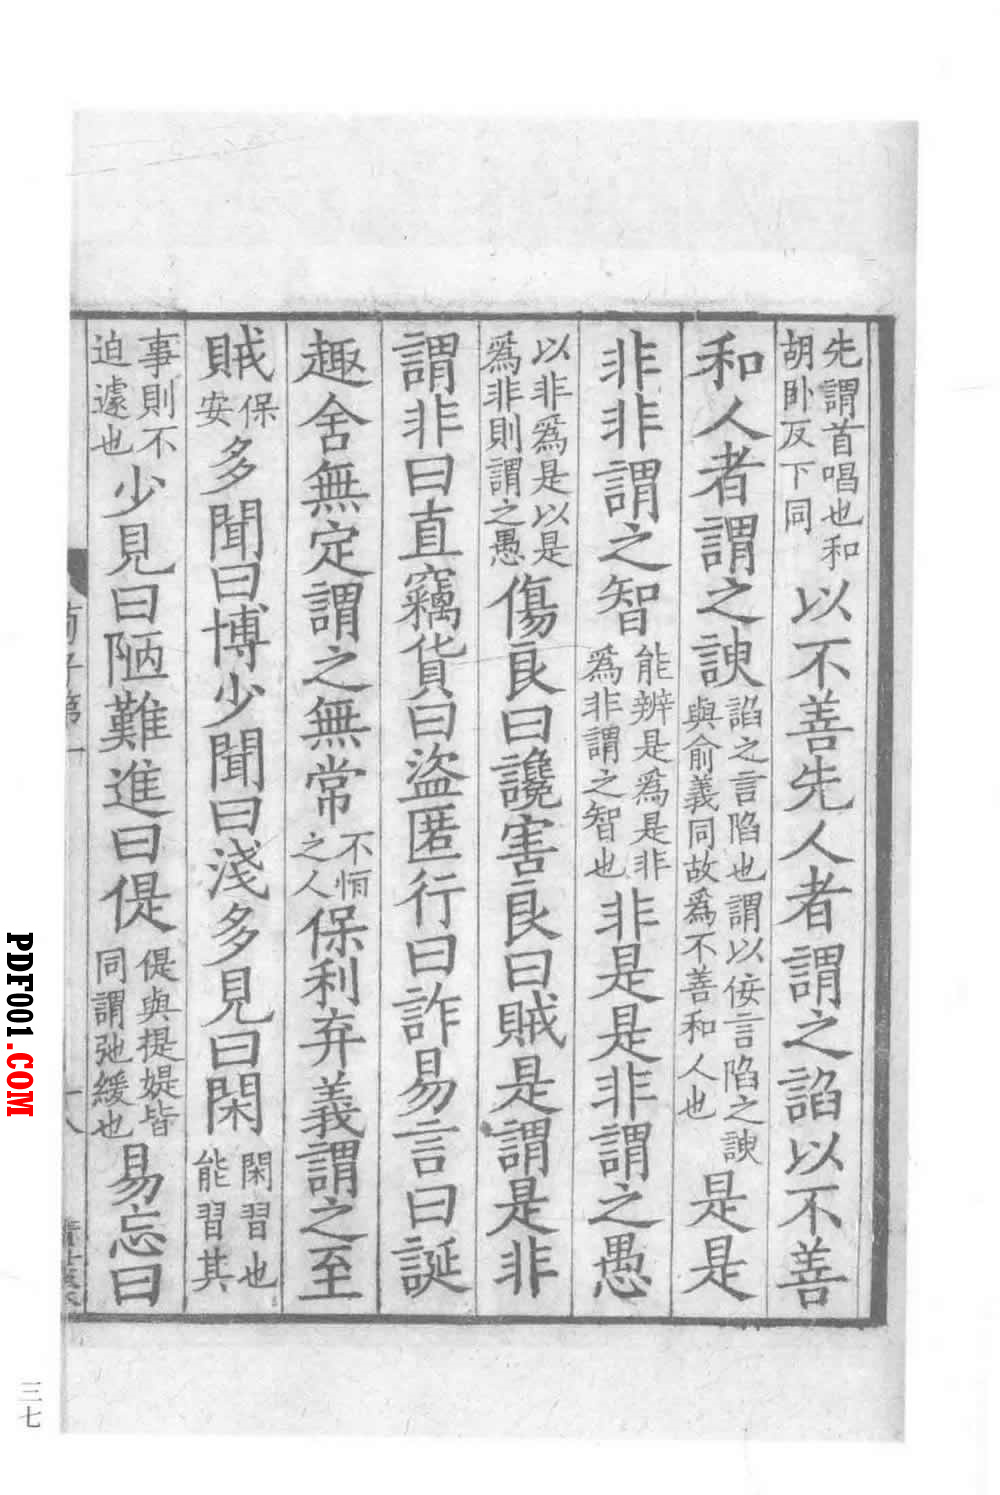 先謂首唱也和胡卧反下同以不善先人者謂之諂以不善
和人者謂之諛諂之言陷也謂以佞言陷之諛與俞義同故爲不善和人也是是
非非謂之智能辨是爲是非爲非謂之智也非是是非謂之愚
以非爲是以是爲非則謂之愚傷良曰讒害良曰賊是謂是非
謂非曰直竊貨曰盜匿行曰詐易言曰誕
趣舍無定謂之無常不恒之人保利弃義謂之至
賊保安多聞曰博少聞曰淺多見曰閑閑習也能習其
事則不迫遽也少見曰陋難進曰偍偍與提媞皆同謂弛緩也易忘曰
荀子第一
十八
三七
PDF001.COM